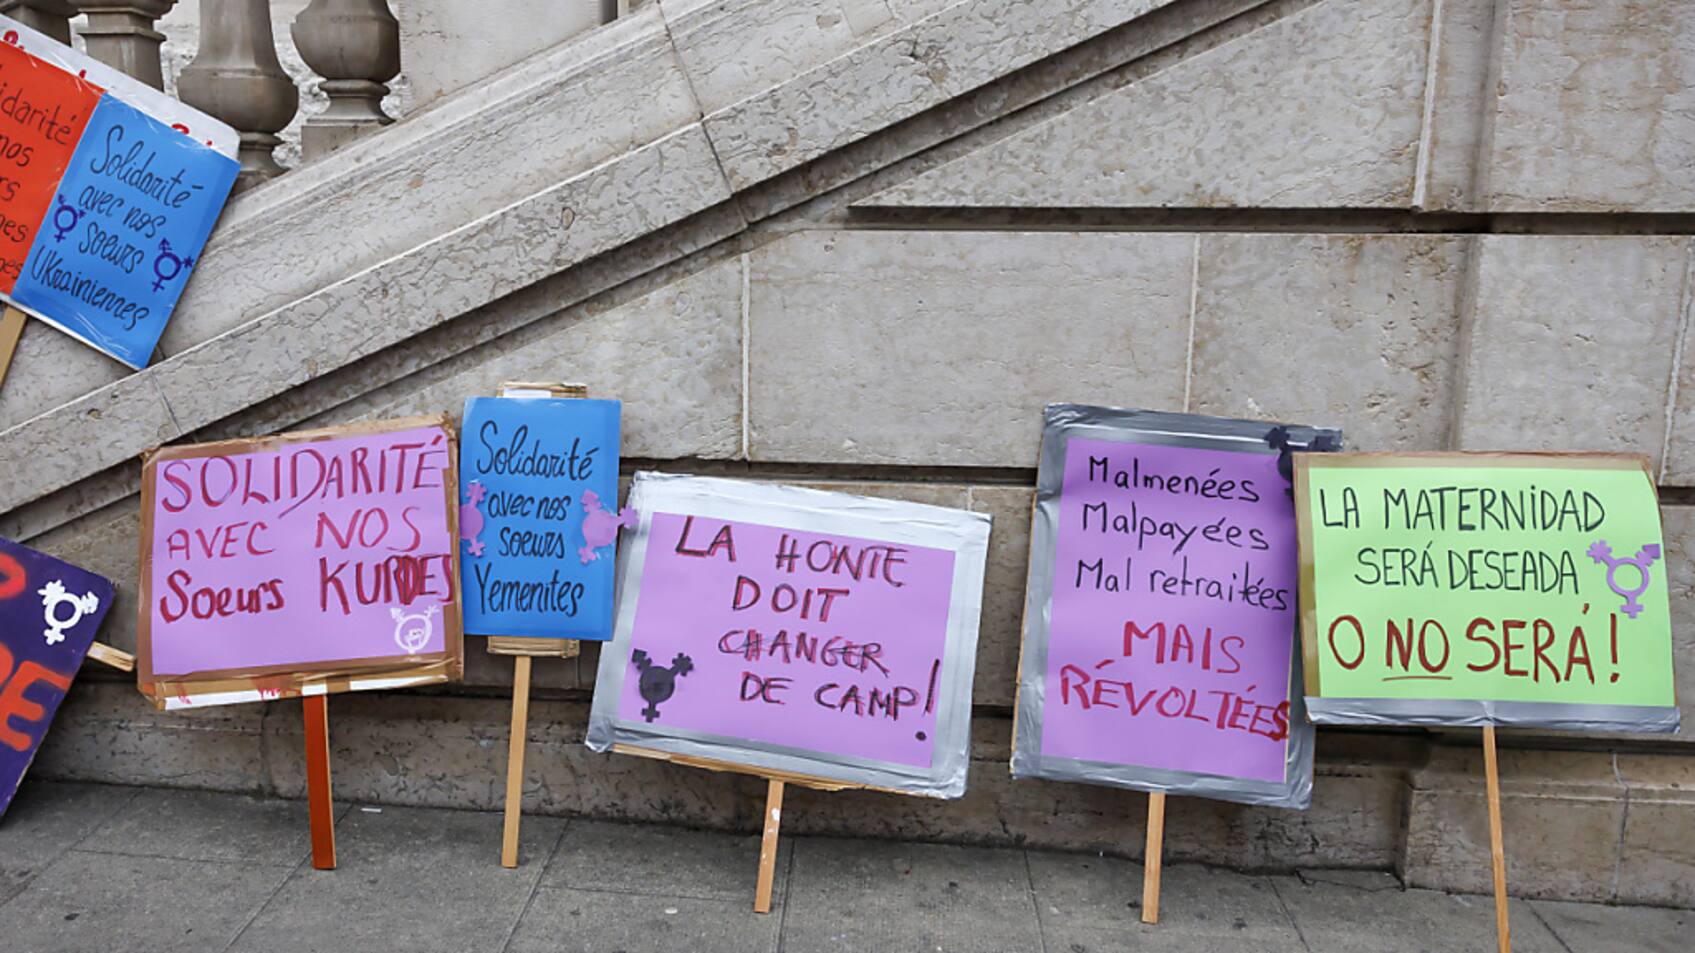 nos
Solidarité
avec nos
soeurs
Ukrainiennes
SOLIDARITÉ
AVEC NOS
Soeurs KURDES
Solidarité
avec nos
soeurs
Yemenites
LA HONTE
DOIT
CHANGER
DE CAMP!
Malmenées
Malpayées
Mal retraitées
MAIS
RÉVOLTÉES
LA MATERNiDAD
SERÁ DESEADA
O NO SERÁ!